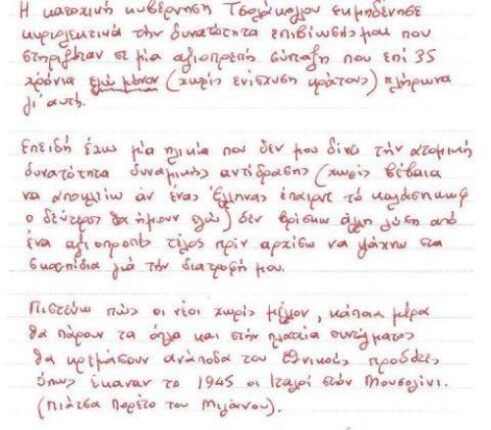 Η κατοχική κυβέρνηση Τσολάκογλου εκμηδένησε
κυριολεκτικά την δυνατότητα επιβίωσής μου που
στηριζόταν σε μία αξιοπρεπή σύνταξη που επί 35
χρόνια εγώ μόνον (χωρίς ενίσχυση κράτους) πλήρωνα
γι' αυτή.
Επειδή έχω μία ηλικία που δεν μου δίνει την ατομική
δυνατότητα δυναμικής αντίδρασης (χωρίς βέβαια
να αποκλείω αν ένας Έλληνας έπαιρνε το καλάσνικωφ
ο δεύτερος θα ήμουν εγώ) δεν βρίσκω άλλη λύση από
ένα αξιοπρεπές τέλος πριν αρχίσω να ψάχνω στα
σκουπίδια γιά την διατροφή μου.
Πιστεύω πως οι νέοι χωρίς μέλλον, κάποια μέρα
θα πάρουν τα όπλα και στην πλατεία συντάγματος
θα κρεμάσουν ανάποδα τους εθνικούς προδότες
όπως έκαναν το 1945 οι Ιταλοί στον Μουσολίνι.
(Πιάτσα Πορέτο του Μιλάνου).